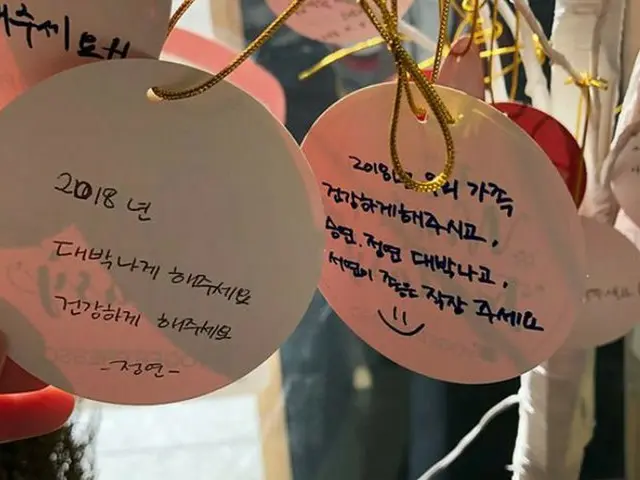 해주세요!!
2018년
대박나게 해주세요
건강하게 해주세요
-정연-
2018년 우리 가족
건강하게해주시고,
승연, 정연 대박나고,
서연이 좋은 직장 주세요